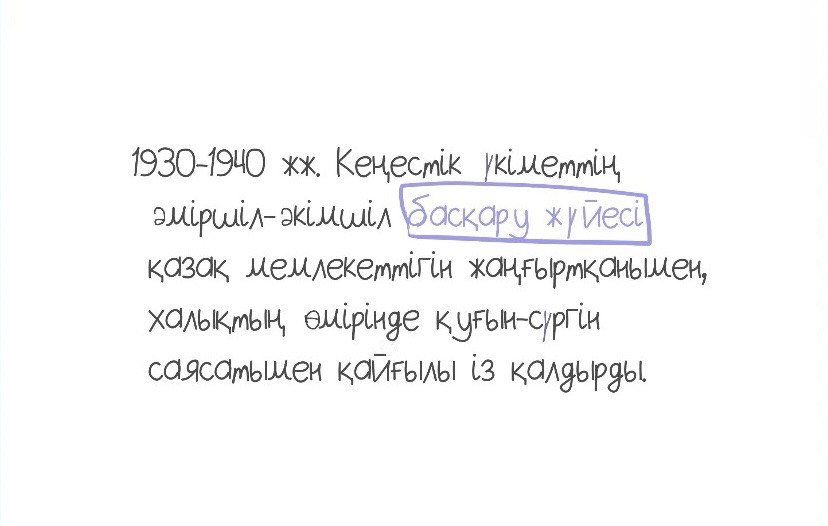 1930-1940 жж. Кеңестік үкіметтің
әміршіл-әкімшіл басқару жүйесі
қазақ мемлекеттігін жаңғыртқанымен,
халықтың өмірінде қуғын-сүргін
саясатымен қайғылы із қалдырды.